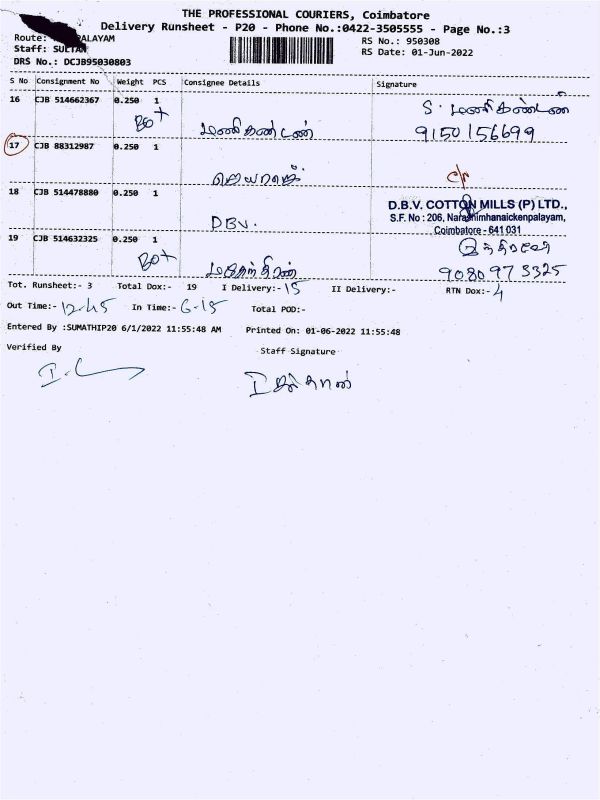 THE PROFESSIONAL COURIERS, Coimbatore
Delivery Runsheet - P20 - Phone No.:0422-3505555 - Page No.:3
Route: PALAYAM
RS No.: 950308
Staff: SULTAN
RS Date: 01-Jun-2022
DRS No.: DCJB95030803
S No Consignment No Weight PCS Consignee Details Signature
16 CJB 514662367 0.250 1
Box மணிகண்டன் S. மணிகண்டன்
9150156699
17 CJB 88312987 0.250 1
ஜெயராஜ் c/r
18 CJB 514478880 0.250 1
DBV.
D.B.V. COTTON MILLS (P) LTD.,
S.F. No : 206, Narashimhanaickenpalayam,
Coimbatore - 641 031
19 CJB 514632325 0.250 1
Box
9080973325
Tot. Runsheet:- 3 Total Dox:- 19 I Delivery:- 15 II Delivery:- RTN Dox:- 4
Out Time:- 12.45 In Time:- 6.15 Total POD:-
Entered By :SUMATHIP20 6/1/2022 11:55:48 AM Printed On: 01-06-2022 11:55:48
Verified By Staff Signature